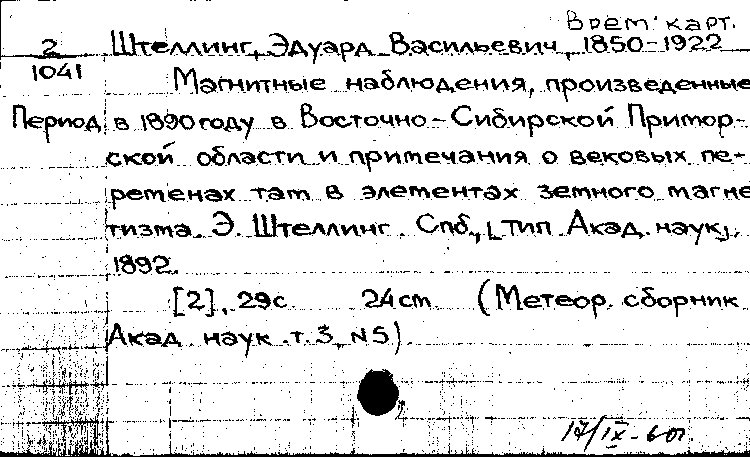 Врем. карт.
2 Штеллинг, Эдуард Васильевич, 1850-1922
1041
Магнитные наблюдения, произведенные
Период. в 1890 году в Восточно-Сибирской Примор-
ской области и примечания о вековых пе-
ременах там в элементах земного магне
тизма. Э. Штеллинг. Спб., [тип. Акад. наук],
1892.
[2], 29с. 24 см. (Метеор. сборник
Акад. наук. т. 3, N5).
17/IX-60г.